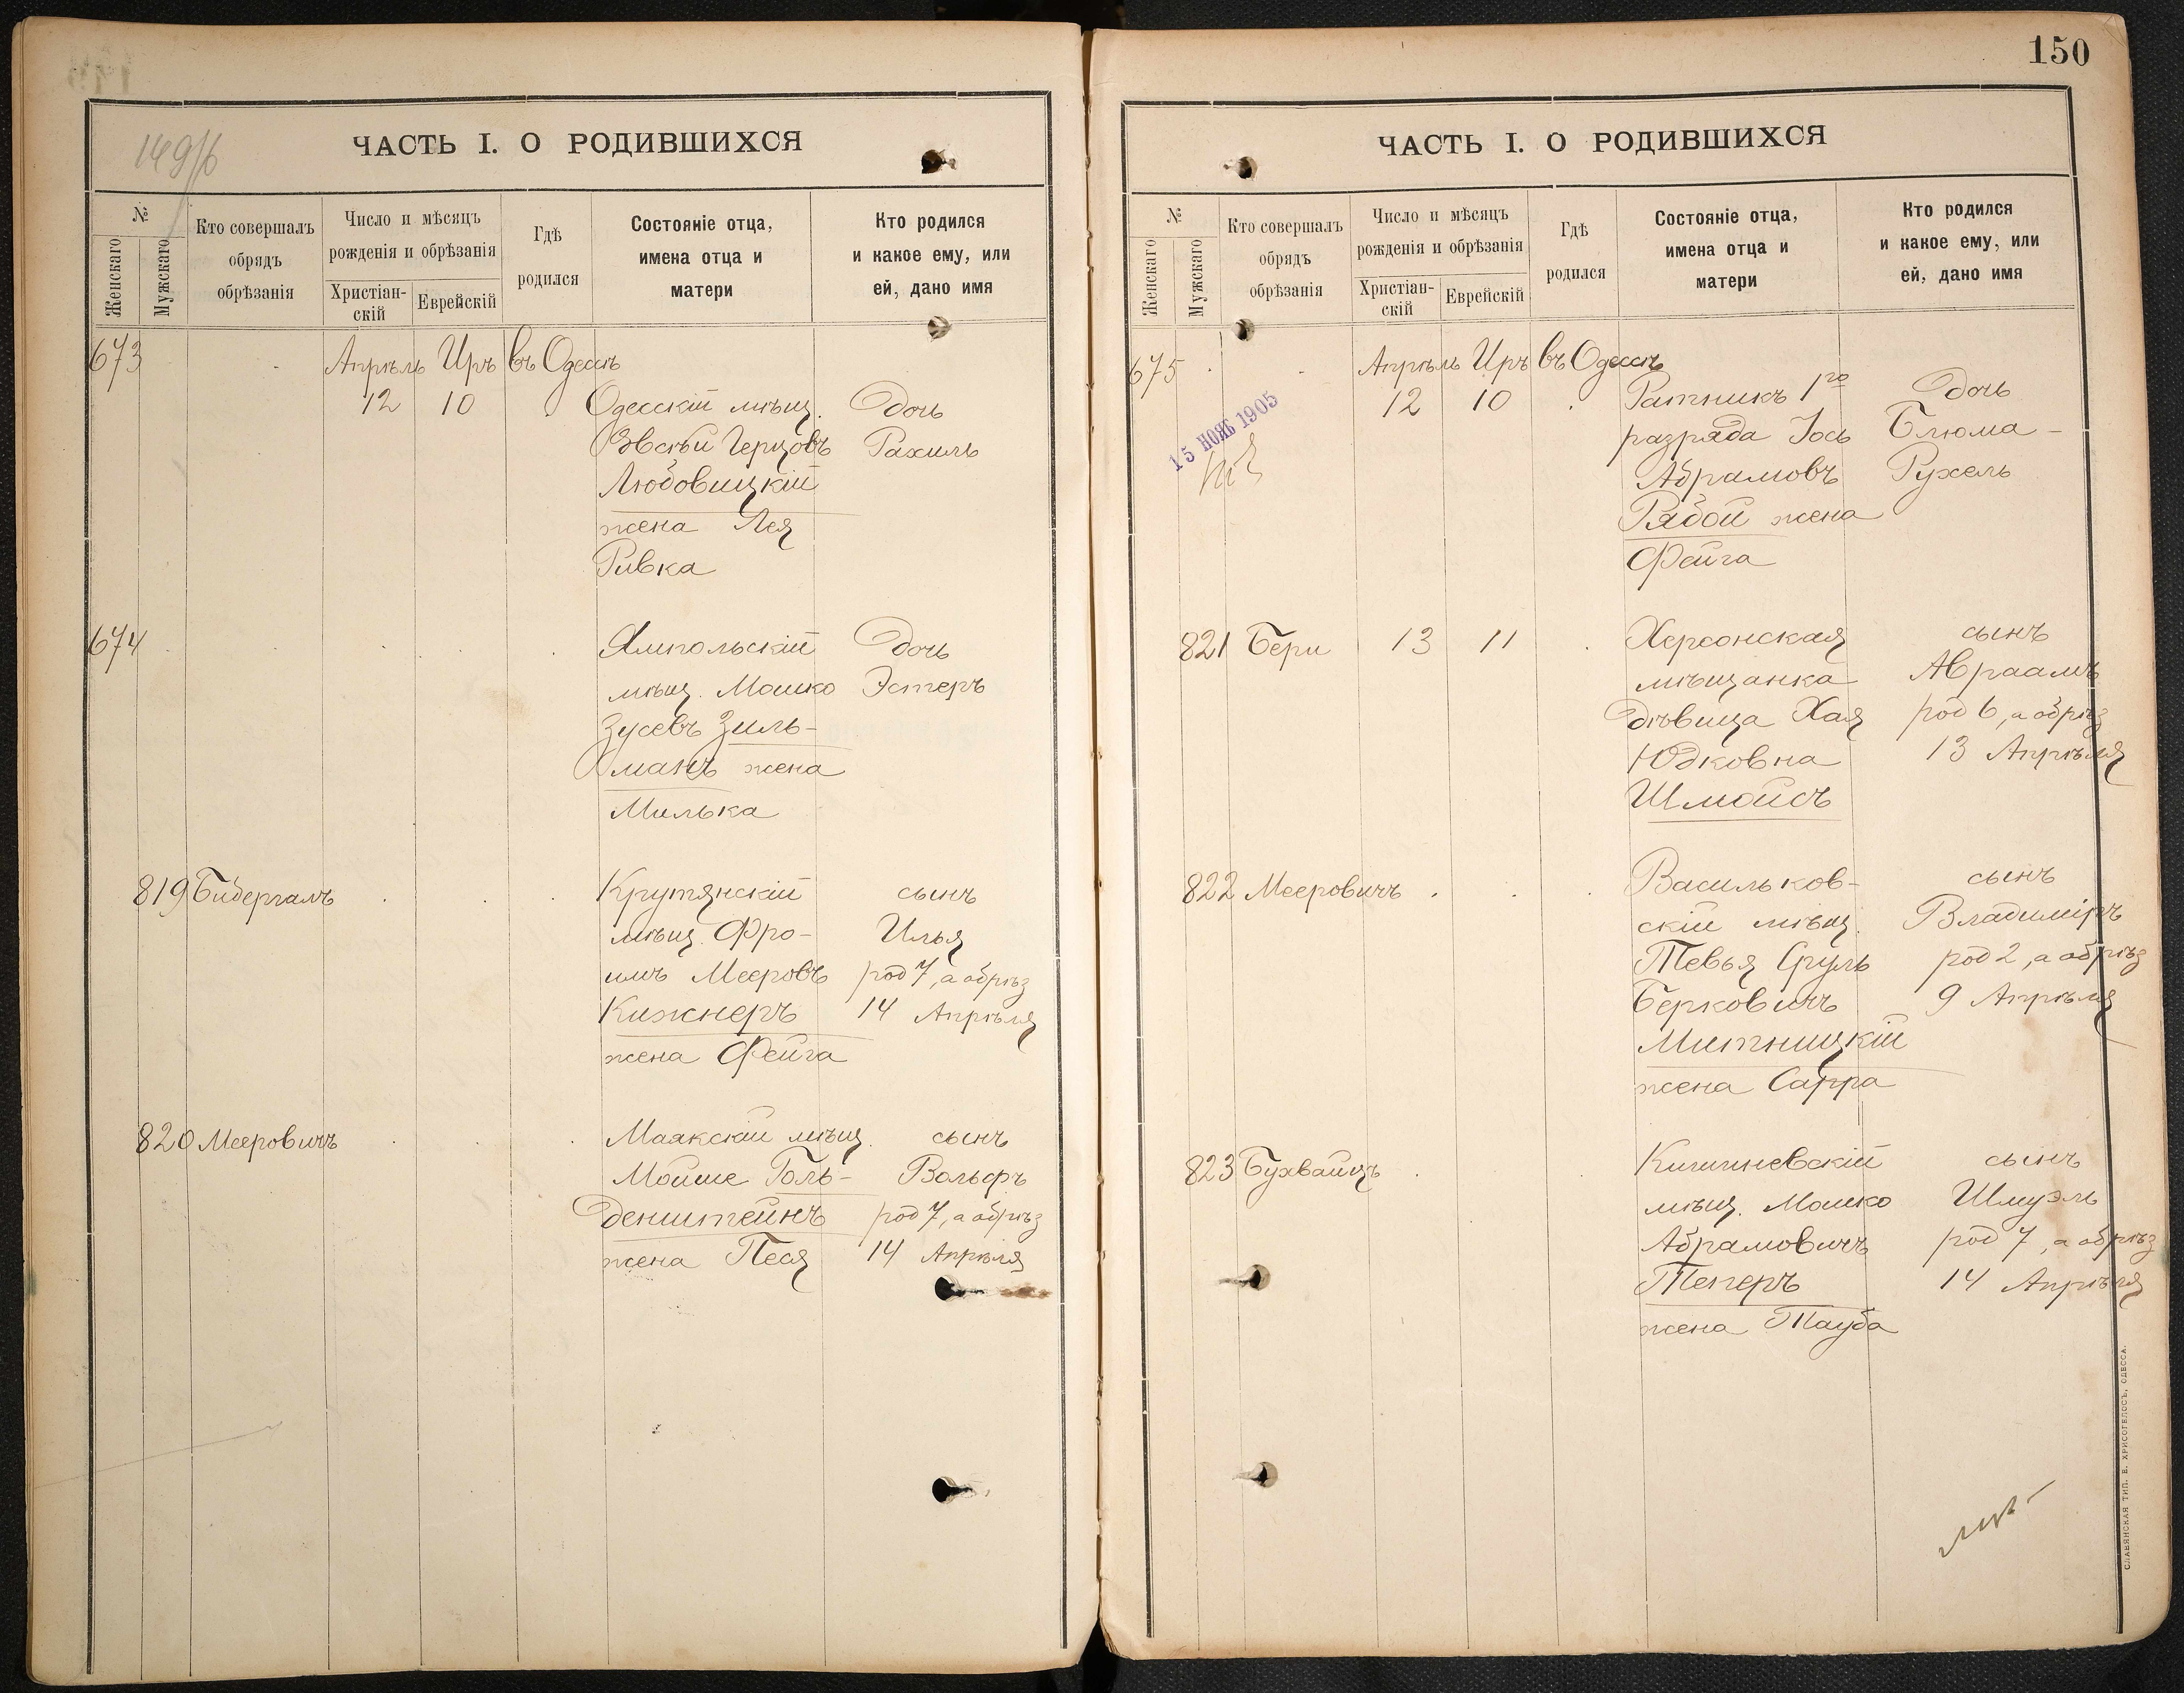 149/б
ЧАСТЬ I. О РОДИВШИХСЯ
№
Женскаго
Мужскаго
Кто совершалъ
обрядъ
обрѣзанія
Число и мѣсяцъ
рожденія и обрѣзанія
Христіан-
скій
Еврейскій
Гдѣ
родился
Состояніе отца,
имена отца и
матери
Кто родился
и какое ему, или
ей, дано имя
673 Апрѣль Иръ въ Одессѣ
12 10 Одесскій мѣщ. Дочь
Герцовъ Рахиль
Любовицкій
жена Лея
Ривка
674 Ямпольскій Дочь
мѣщ. Мошко Эстеръ
Зусевъ Зиль-
манъ жена
Милька
819 Бидергалъ Крутянскій сынъ
мѣщ. Фро- Илья
имъ Мееровъ род 7, а обрѣз
Кижнеръ 14 Апрѣля
жена Фейга
820 Мееровичъ Маякскій мѣщ. сынъ
Мойше Голь- Вольфъ
денштейнъ род 7, а обрѣз
жена Песя 14 Апрѣля
150
ЧАСТЬ I. О РОДИВШИХСЯ
№
Женскаго
Мужскаго
Кто совершалъ
обрядъ
обрѣзанія
Число и мѣсяцъ
рожденія и обрѣзанія
Христіан-
скій
Еврейскій
Гдѣ
родился
Состояніе отца,
имена отца и
матери
Кто родился
и какое ему, или
ей, дано имя
675 Апрѣль Иръ въ Одессѣ
12 10 Ратникъ 1го Дочь
15 НОЯБ 1905
разряда Іось Блюма-
Абрамовъ Рухель
Рябой жена
Фейга
821 Бери 13 11 Херсонская сынъ
мѣщанка Авраамъ
Дѣвица Хая род 6, а обрѣз
Юдковна 13 Апрѣля
Шмойсъ
822 Мееровичъ Васильков- сынъ
скій мѣщ. Владиміръ
Тевья Сруль род 2, а обрѣз
Берковичъ 9 Апрѣля
Митницкій
жена Сарра
823 Бухвайцъ Кишиневскій сынъ
мѣщ. Мошко Шмуэль
Абрамовичъ род 7, а обрѣз
Теперъ 14 Апрѣля
жена Тауба
СЛАВЯНСКАЯ ТИП. Е. ХРИСОГЕЛОСЪ, ОДЕССА.